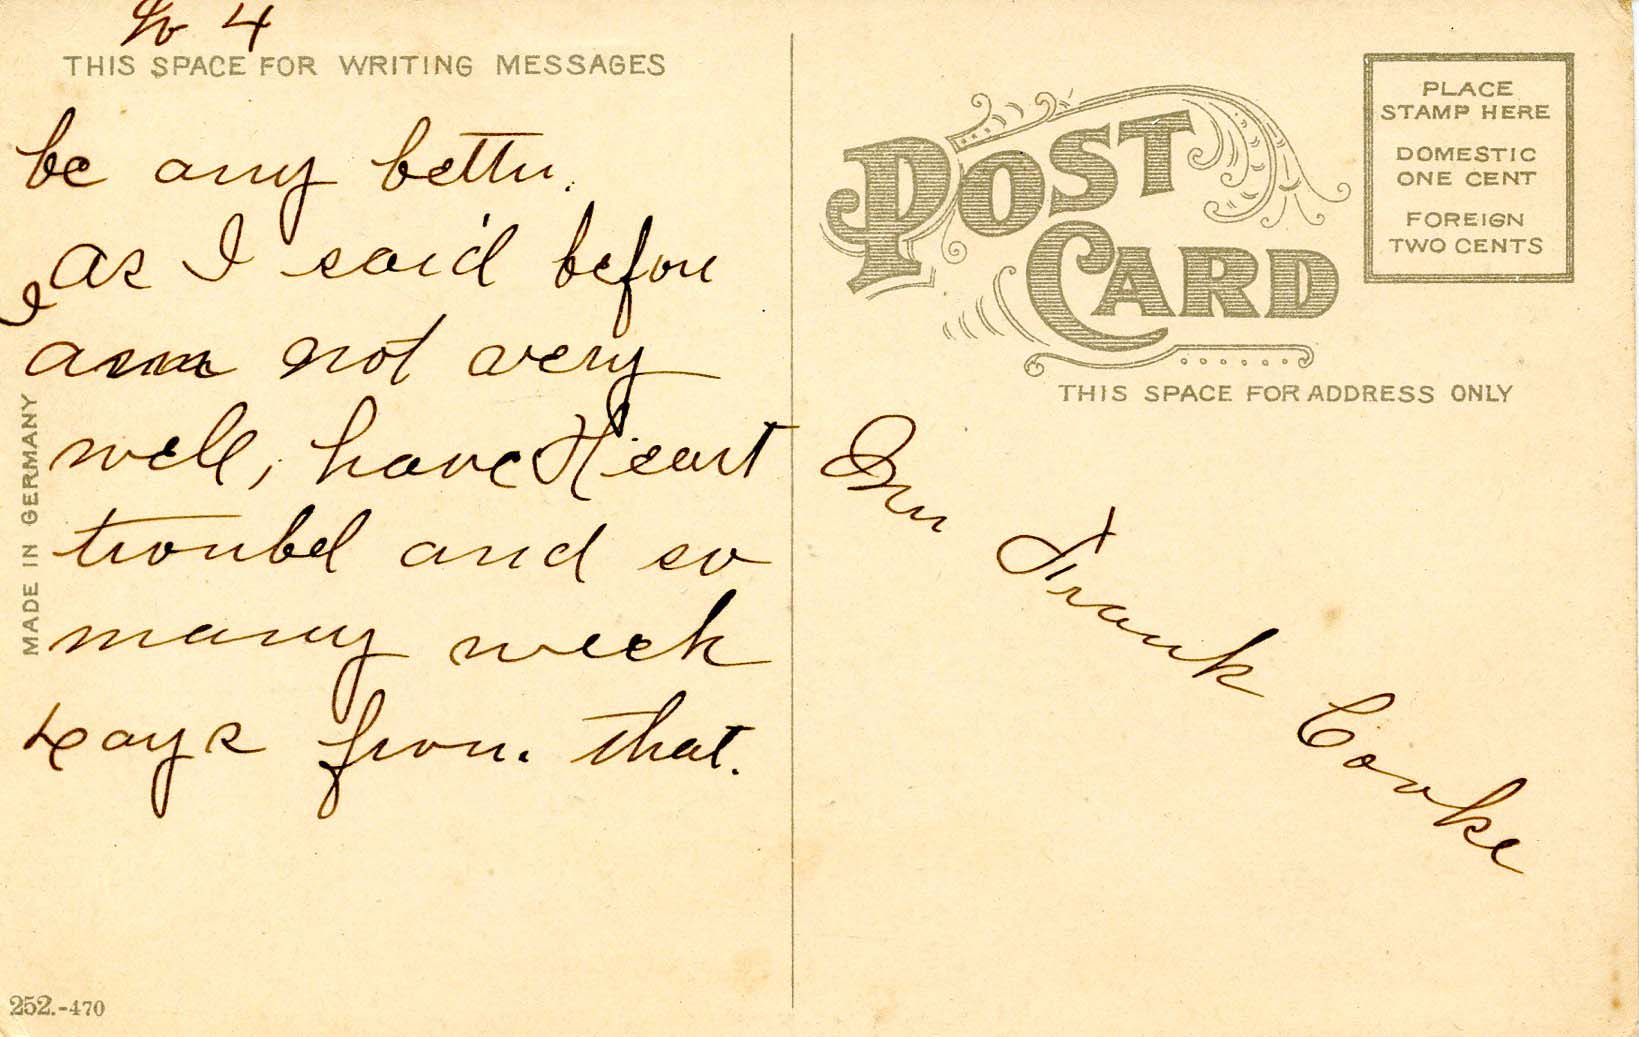 No 4
THIS SPACE FOR WRITING MESSAGES
be any better.
as I said before
I
am not very
well, have Heart
troubel and so
many week
days from that.
MADE IN GERMANY
252.-470
POST
CARD
THIS SPACE FOR ADDRESS ONLY
PLACE
STAMP HERE
DOMESTIC
ONE CENT
FOREIGN
TWO CENTS
Frank Cooke